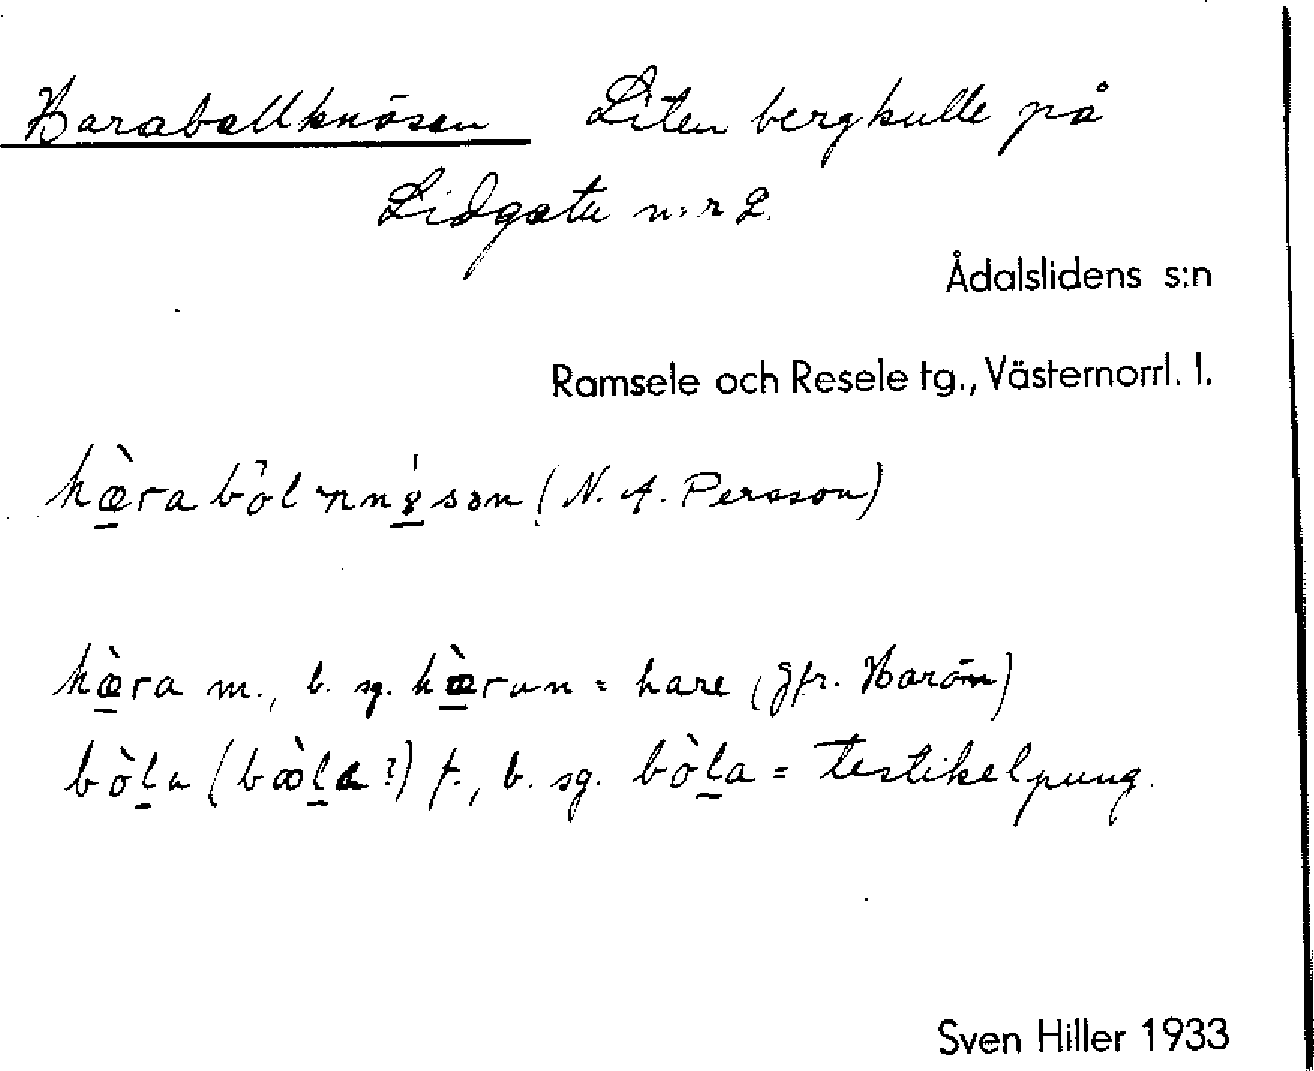 Haraballknösen Liten bergkulle på
Lidgatu n:r 2.
Ådalslidens s:n
Ramsele och Resele tg., Västernorrl. l.
(N. A. Persson)
hæ̀ra m., b. sg. hæ̀ran = hare (Jfr. Harön)
f., b. sg. bòla = testikelpung.
Sven Hiller 1933